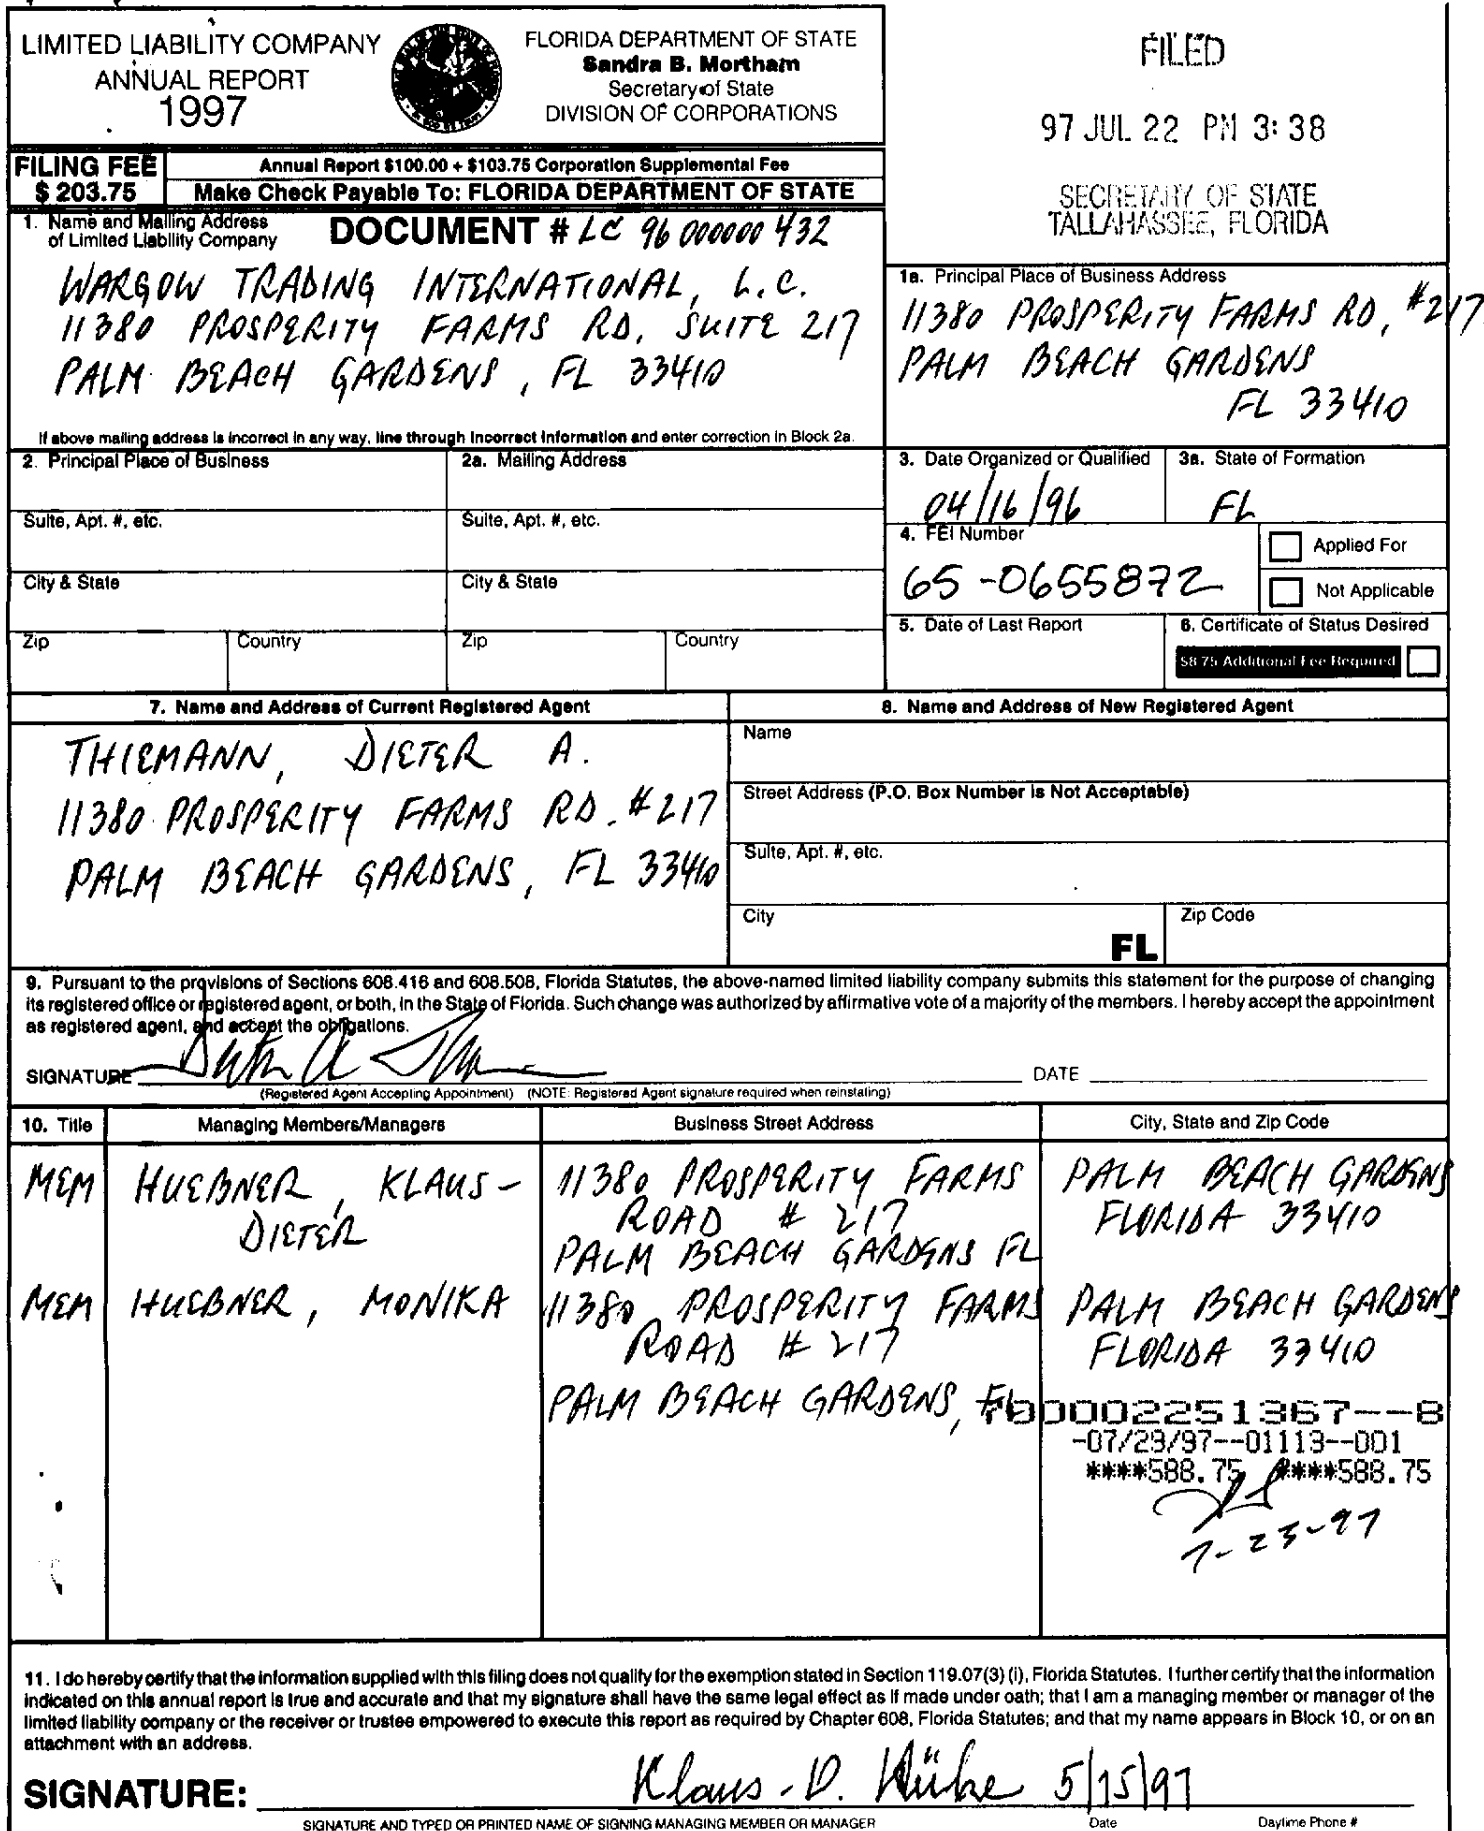 LIMITED LIABILITY COMPANY
ANNUAL REPORT
1997
FLORIDA DEPARTMENT OF STATE
Sandra B. Mortham
Secretary of State
DIVISION OF CORPORATIONS
FILED
97 JUL 22 PM 3:38
SECRETARY OF STATE
TALLAHASSEE, FLORIDA
FILING FEE
$ 203.75
Annual Report $100.00 + $103.75 Corporation Supplemental Fee
Make Check Payable To: FLORIDA DEPARTMENT OF STATE
1. Name and Mailing Address
of Limited Liability Company
DOCUMENT # LC 96 000000 432
WARGOW TRADING INTERNATIONAL, L.C.
11380 PROSPERITY FARMS RD, SUITE 217
PALM BEACH GARDENS, FL 33410
If above mailing address is incorrect in any way, line through incorrect information and enter correction in Block 2a.
1a. Principal Place of Business Address
11380 PROSPERITY FARMS RD, #217
PALM BEACH GARDENS
FL 33410
2. Principal Place of Business
2a. Mailing Address
3. Date Organized or Qualified
04/16/96
3a. State of Formation
FL
Suite, Apt. #, etc.
Suite, Apt. #, etc.
4. FEI Number
65-0655872
Applied For
Not Applicable
City & State
City & State
Zip
Country
Zip
Country
5. Date of Last Report
6. Certificate of Status Desired
$8.75 Additional Fee Required
7. Name and Address of Current Registered Agent
THIEMANN, DIETER A.
11380 PROSPERITY FARMS RD. #217
PALM BEACH GARDENS, FL 33410
8. Name and Address of New Registered Agent
Name
Street Address (P.O. Box Number is Not Acceptable)
Suite, Apt. #, etc.
City
FL
Zip Code
9. Pursuant to the provisions of Sections 608.416 and 608.508, Florida Statutes, the above-named limited liability company submits this statement for the purpose of changing
its registered office or registered agent, or both, in the State of Florida. Such change was authorized by affirmative vote of a majority of the members. I hereby accept the appointment
as registered agent, and accept the obligations.
SIGNATURE
DATE
(Registered Agent Accepting Appointment) (NOTE: Registered Agent signature required when reinstating)
10. Title
Managing Members/Managers
Business Street Address
City, State and Zip Code
MEM
HUEBNER, KLAUS-
DIETER
11380 PROSPERITY FARMS
ROAD # 217
PALM BEACH GARDENS FL
PALM BEACH GARDENS
FLORIDA 33410
MEM
HUEBNER, MONIKA
11380 PROSPERITY FARMS
ROAD # 217
PALM BEACH GARDENS, FL
PALM BEACH GARDENS
FLORIDA 33410
700002251367--8
-07/23/97--01113--001
****588.75 ****588.75
7-23-97
11. I do hereby certify that the information supplied with this filing does not qualify for the exemption stated in Section 119.07(3) (i), Florida Statutes. I further certify that the information
indicated on this annual report is true and accurate and that my signature shall have the same legal effect as if made under oath; that I am a managing member or manager of the
limited liability company or the receiver or trustee empowered to execute this report as required by Chapter 608, Florida Statutes; and that my name appears in Block 10, or on an
attachment with an address.
SIGNATURE: Klaus-D. 5/15/97
SIGNATURE AND TYPED OR PRINTED NAME OF SIGNING MANAGING MEMBER OR MANAGER
Date
Daytime Phone #